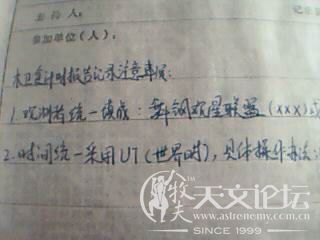 主持人：
记录
参加单位(人)：
木卫食计时报告记录注意事项：
1.观测者统一填成：舞钢观星联盟(xxx)或
2.时间统一采用UT(世界时)，具体操作办法：
牧夫天文论坛
www.astronomy.com.cn
SINCE 1999